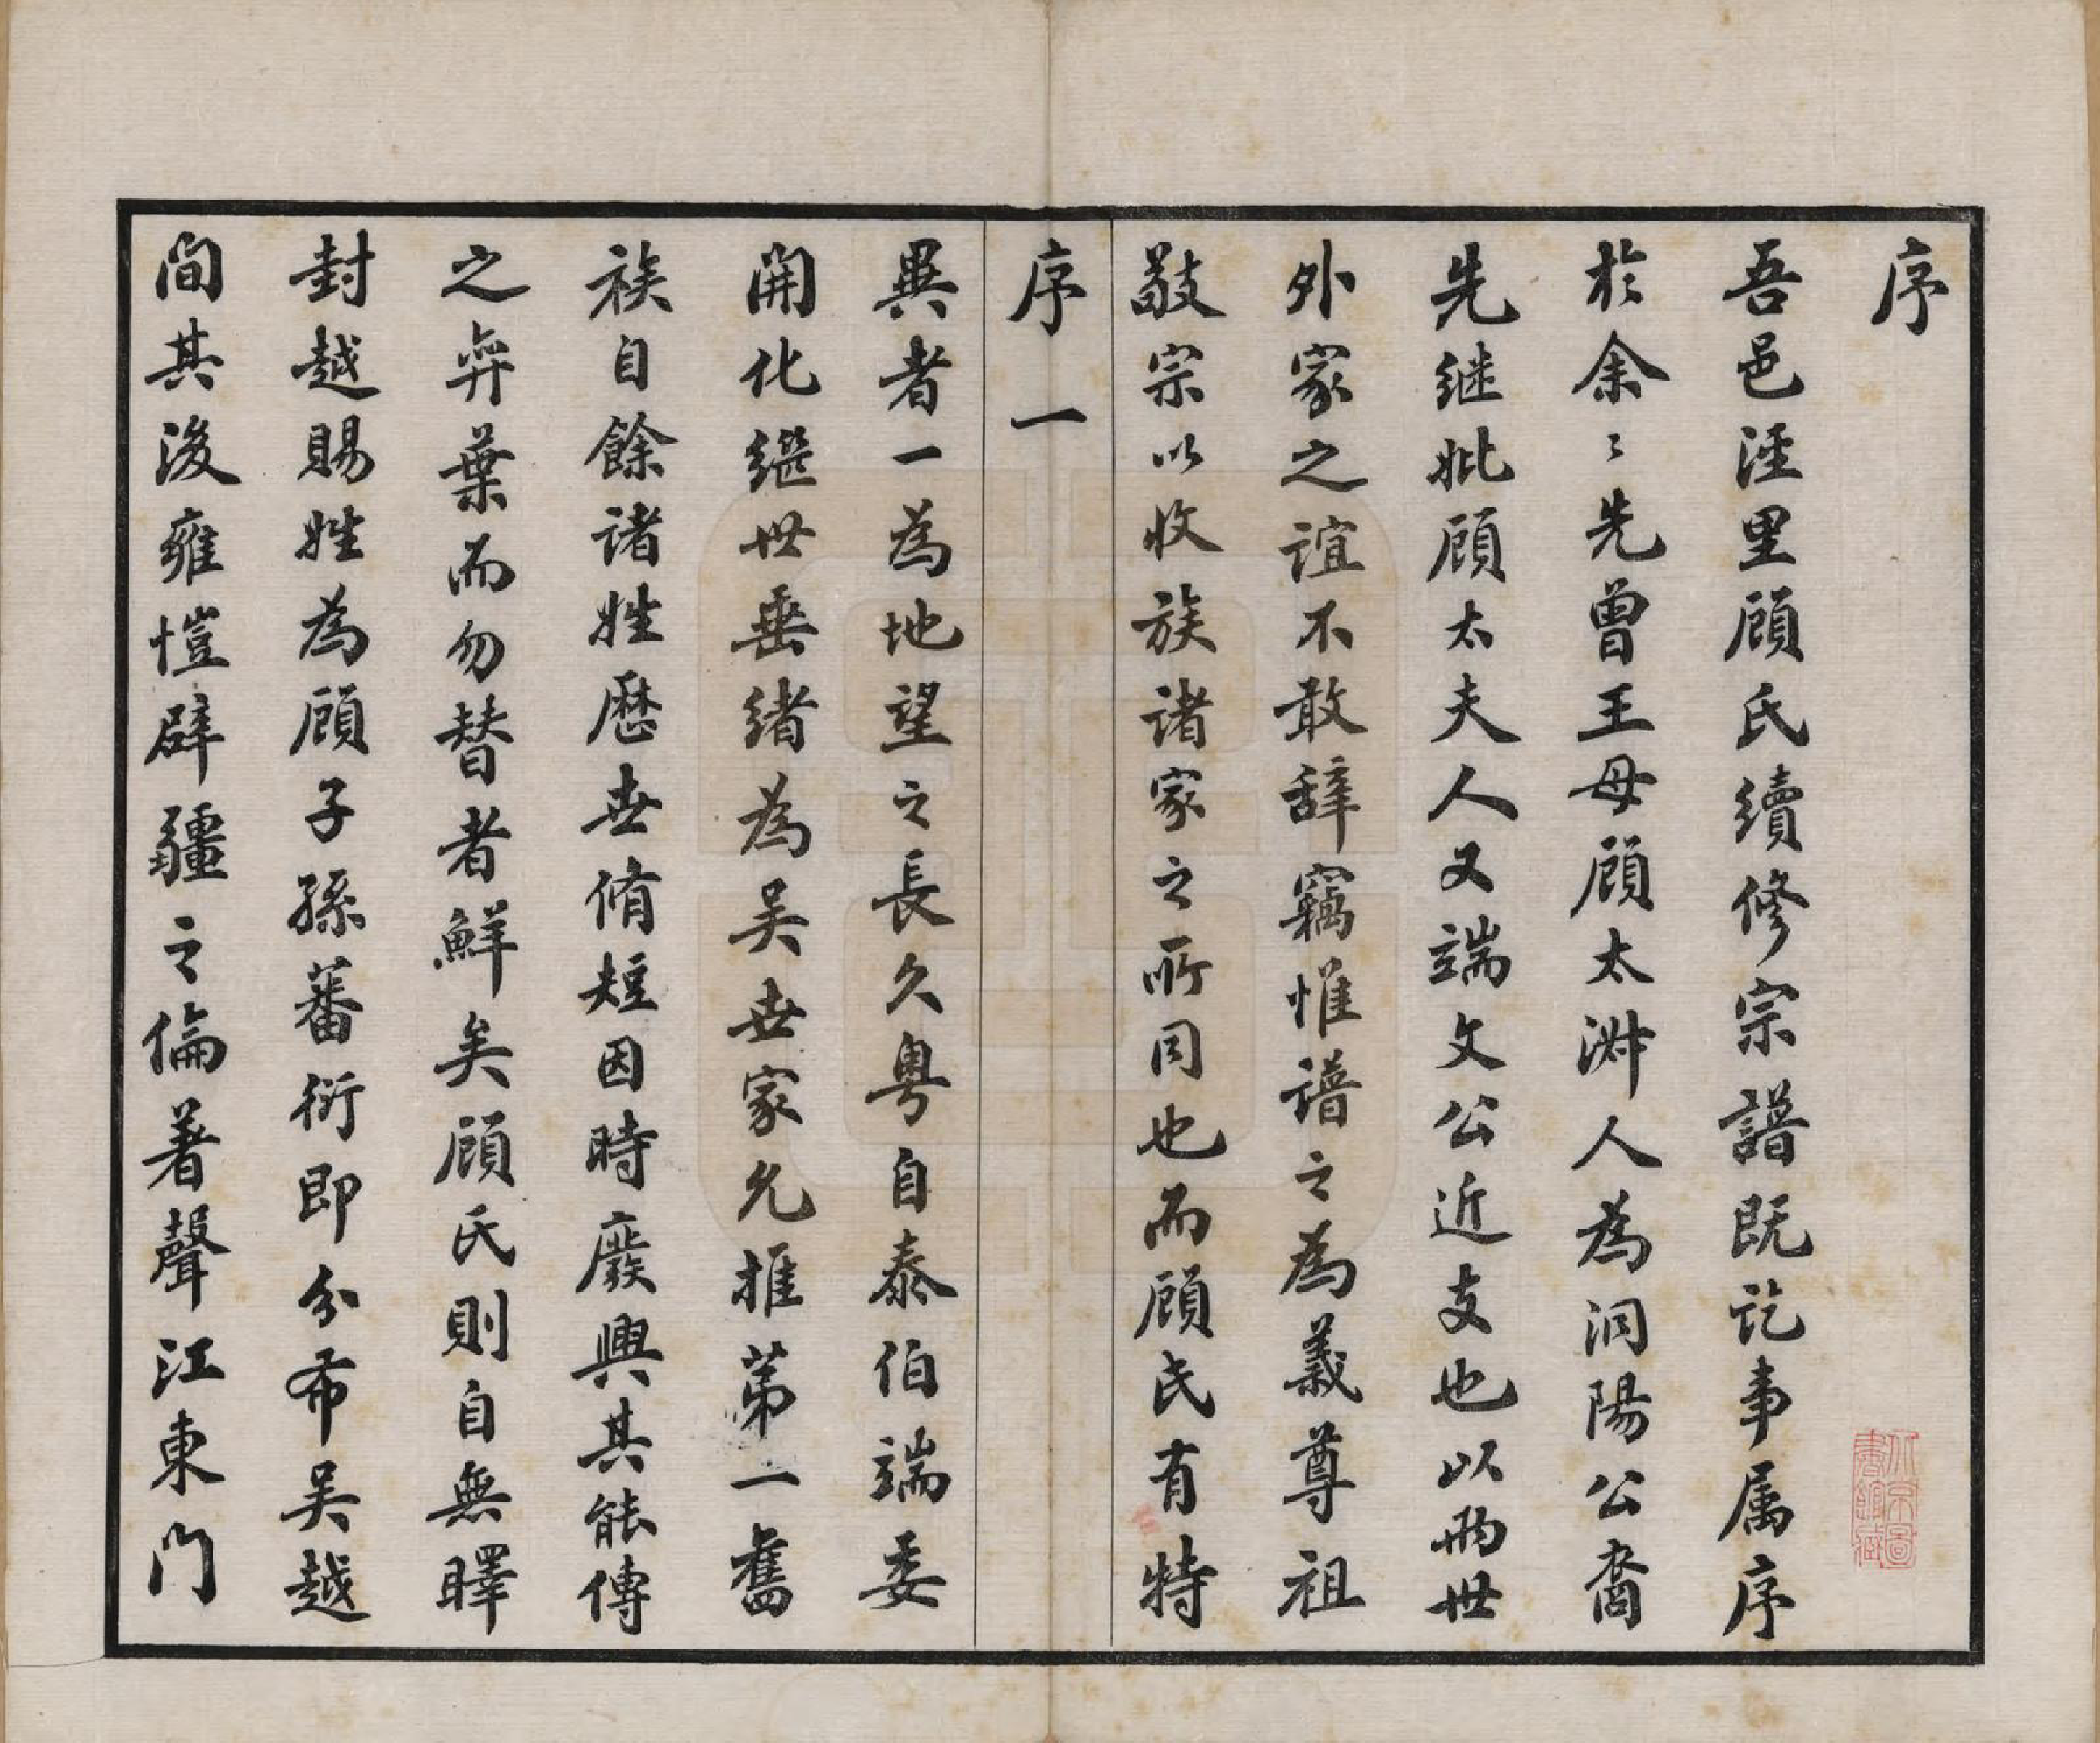 序
吾邑涇里顧氏續修宗譜既訖事属序
於余々先曾王母顧太淑人為洞陽公裔
先继妣顧太夫人又端文公近支也以兩世
外家之誼不敢辭竊惟譜之為義尊祖
敬宗以收族諸家之所同也而顧氏有特
序一
異者一為地望之長久粤自泰伯端委
開化繼世垂緒為吴世家允推第一舊
族自餘諸姓歷世脩短因時廢興其能傳
之弈葉而勿替者鮮矣顧氏則自無曎
封越賜姓為顧子孫蕃衍即分布吴越
间其後雍愷辟疆之倫著聲江東门
北京圖書館藏